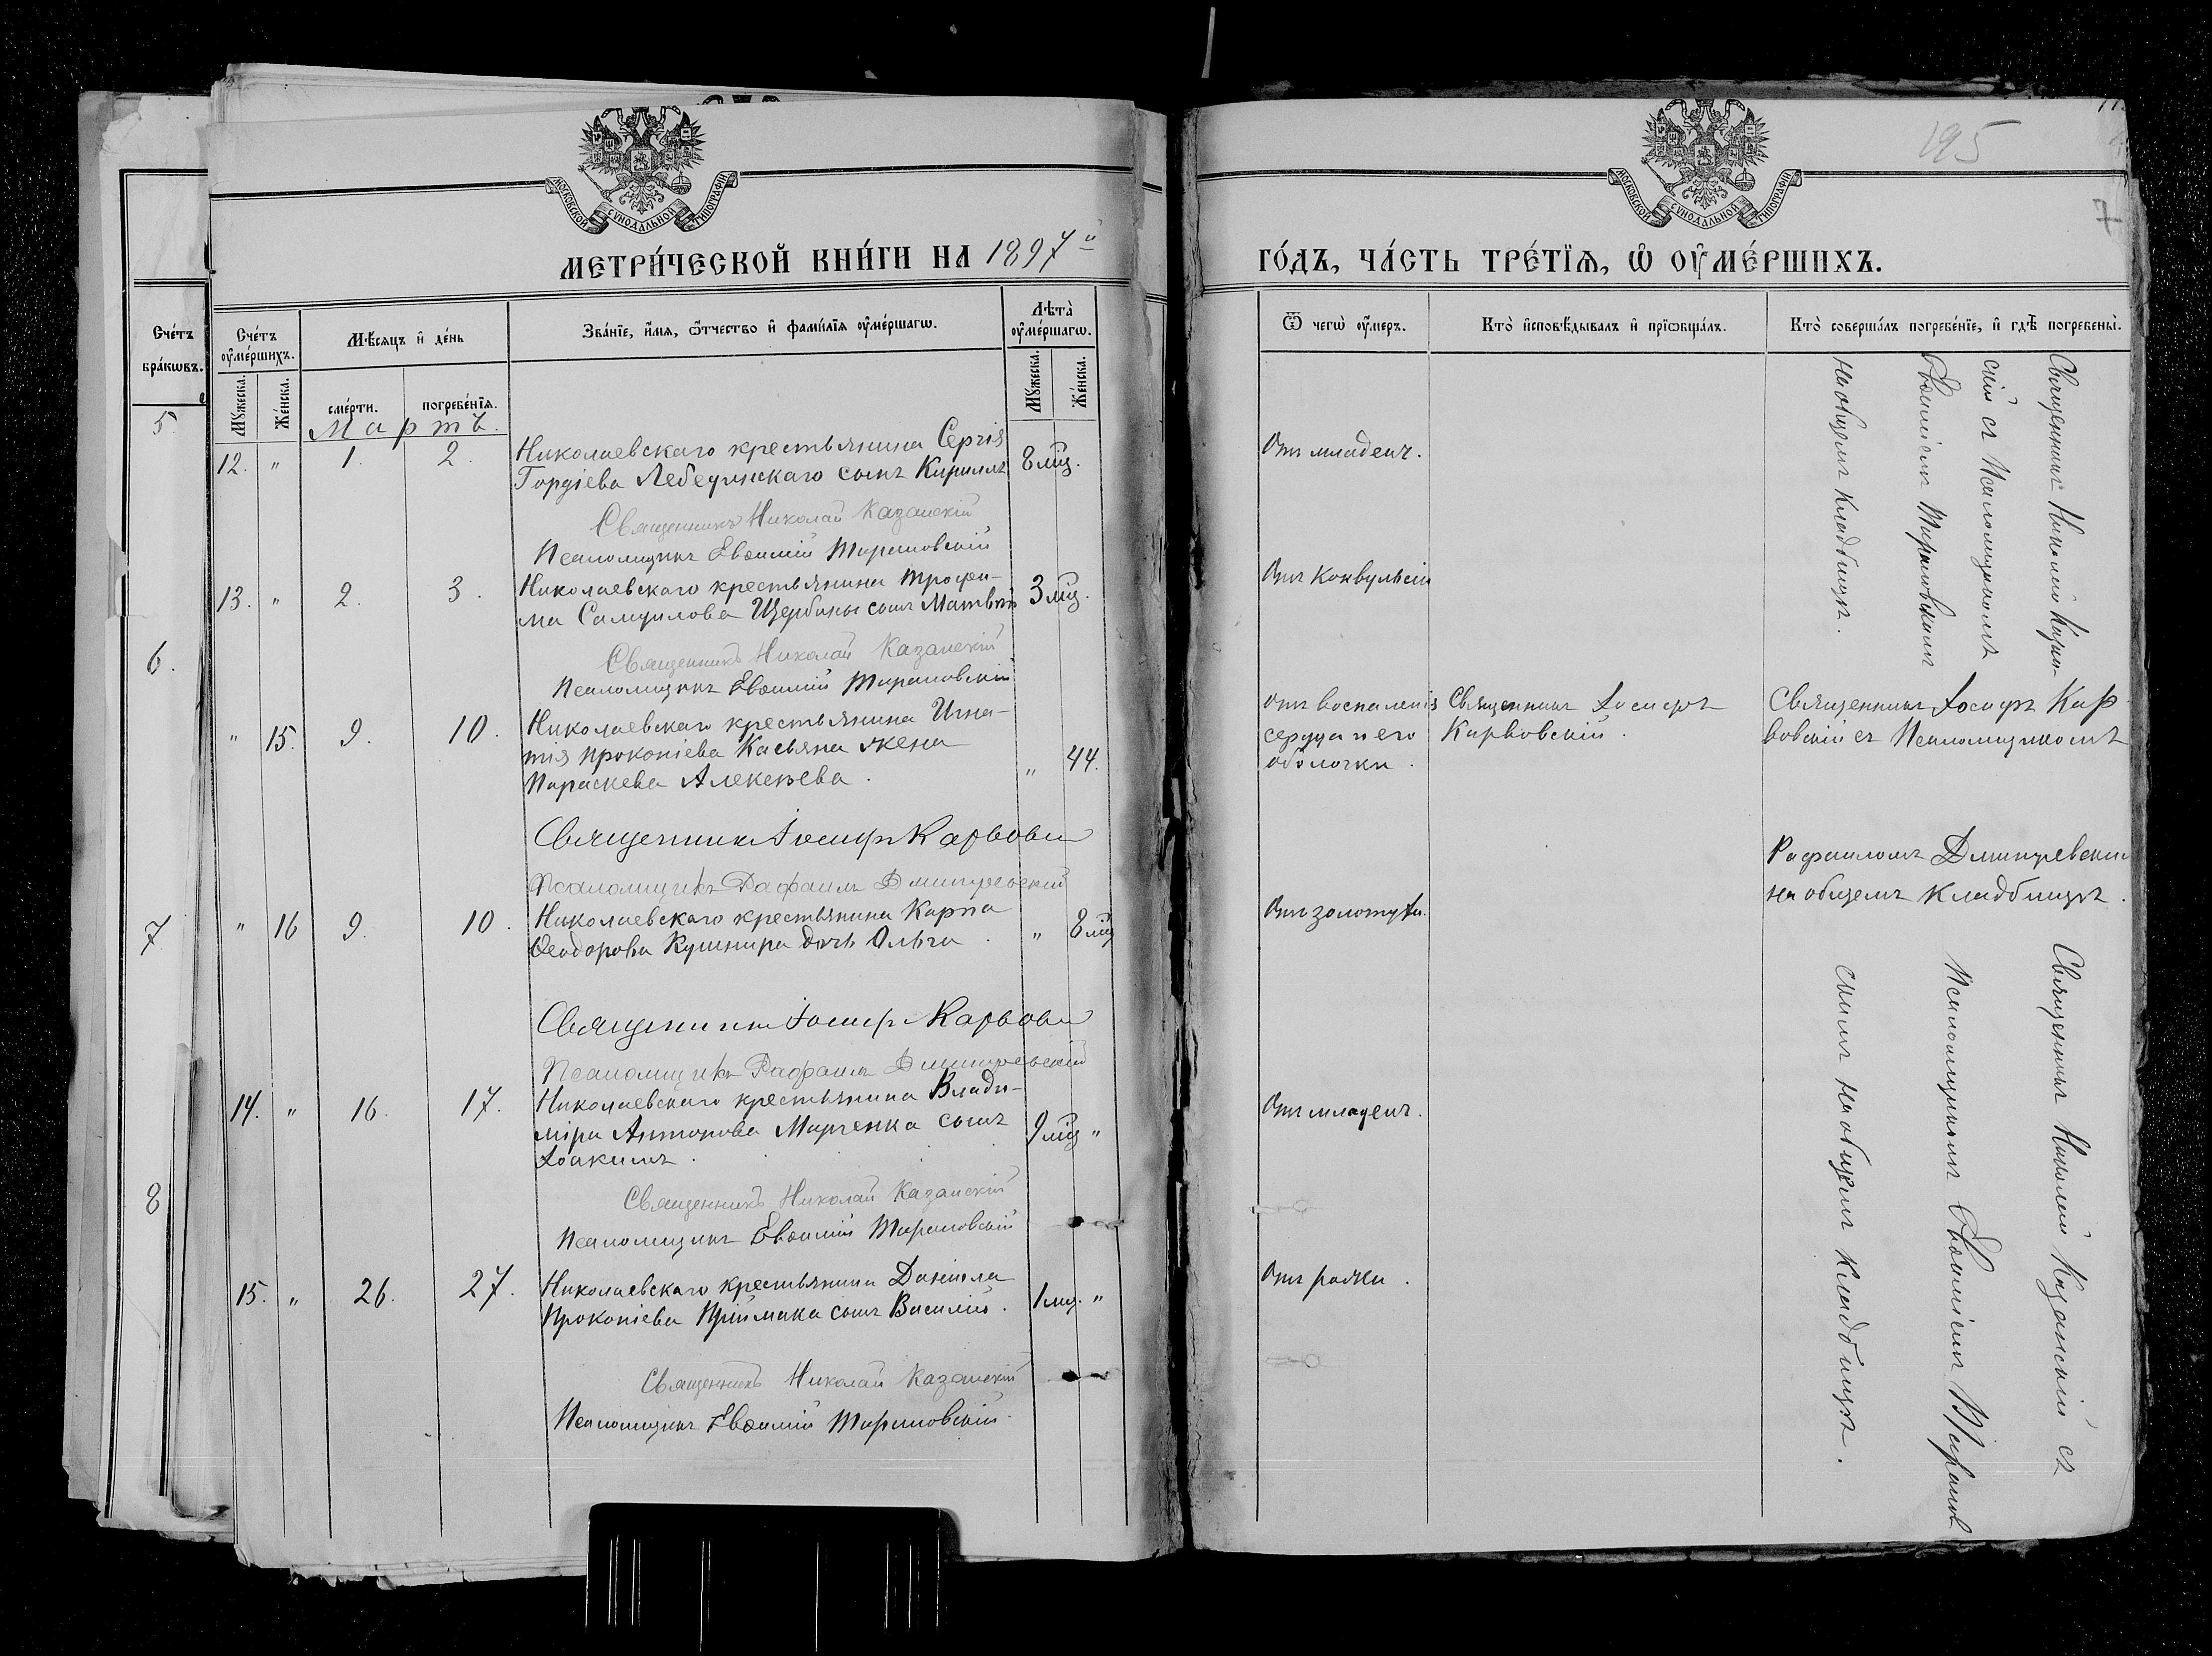 МОСКОВСКОЙ СѴНОДАЛЬНОЙ ТИПОГРАФИИ
МЕТРИ́ЧЕСКОЙ КНИ́ГИ НА 1897й
Счéтъ брáкѡвъ.
5
6.
7
8
Счéтъ ᲂу҆мéршихъ.
Мꙋ́жеска.
Жéнска.
Мѣ́сѧцъ и҆ дéнь
смéрти.
погребéнїѧ.
Звáнїе, и҆́мѧ, ѻ҆́тчество и҆ фамѝлїѧ ᲂу҆мéршагѡ.
Лѣ́та ᲂу҆мéршагѡ.
Мꙋ́жеска.
Жéнска.
Мартъ.
12. " 1. 2. Николаевскаго крестьянина Сергія 8 мц.
Гордіева Лебединскаго сынъ Кириллъ
Священникъ Николай Казанскій
Псаломщикъ Евѳимій Тарановскій
13. " 2. 3. Николаевскаго крестьянина Трофи- 3 мц.
ма Самуилова Щербины сынъ Матвѣй
Священникъ Николай Казанскій
Псаломщикъ Евѳимій Тарановскій
" 15. 9. 10. Николаевскаго крестьянина Игна-
тія Прокопіева Касьяна жена " 44.
Параскева Алексѣева.
Священникъ Іосифъ Карвовскій
Псаломщикъ Рафаилъ Дмитревскій
" 16 9. 10. Николаевскаго крестьянина Карпа
Ѳеодорова Кушнира дочь Ольга. " 8 мц
Священникъ Іосифъ Карвовскій
Псаломщикъ Рафаилъ Дмитревскій
14. " 16. 17. Николаевскаго крестьянина Влади-
міра Антонова Марченка сынъ 9 мц "
Іоакимъ.
Священникъ Николай Казанскій
Псаломщикъ Евѳимій Тарановскій
15. " 26. 27. Николаевскаго крестьянина Даніила
Прокопіева Пріймака сынъ Василій. 1 мц. "
Священникъ Николай Казанскій
Псаломщикъ Евѳимій Тарановскій.
195
7
МОСКОВСКОЙ СѴНОДАЛЬНОЙ ТИПОГРАФИИ
ГÓДЪ, ЧÁСТЬ ТРÉТЇѦ, Ѡ҆ ОУ҆МÉРШИХЪ.
Ѿ чегѡ̀ ᲂу҆́меръ.
Ктò и҆сповѣ́дывалъ и҆ прїѡбщáлъ.
Ктò совершáлъ погребéнїе, и҆ гдѣ̀ погребены̀.
Отъ младенч.
Отъ Конвульсіи
Священникъ Николай Казан-
скій съ Псаломщикомъ
Евѳиміемъ Тарановскимъ
на общемъ кладбищѣ.
отъ воспаленія
сердца и его
оболочки.
Священникъ Іосифъ
Карвовскій.
Священникъ Іосифъ Кар
вовскій съ Псаломщикомъ
Рафаиломъ Дмитревским
на общемъ кладбищѣ.
Отъ золотухи.
Отъ младенч.
Отъ рожи.
Священникъ Николай Казанскій съ
Псаломщикомъ Евѳиміемъ Таранов
скимъ на общемъ кладбищѣ.